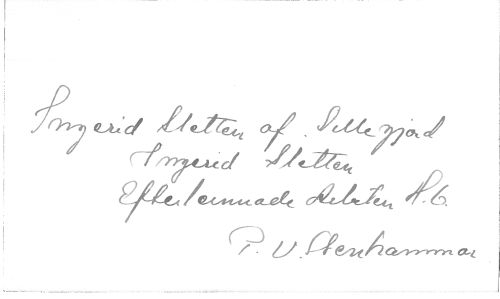 Ingerid Sletten af Sillegjord
Ingerid Sletten
Efterlemnade Arbeten H. 6.
P. U. Stenhammar